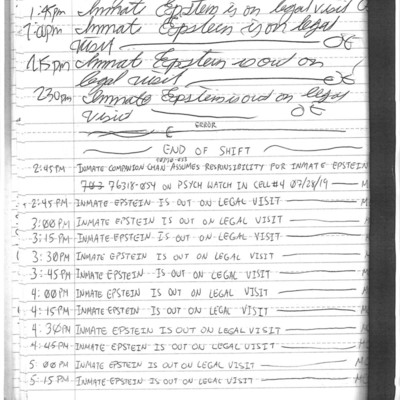 1:45pm Inmat Epstein is on legal visit OE
2:00pm Inmat Epstein is on legal
visit OE
2:15pm Inmat Epstein is out on
legal visit OE
2:30pm Inmate Epstein is out on legal
visit OE
E ERROR
END OF SHIFT
2:45PM INMATE COMPANION CHAN ASSUMES RESPONSIBILITY FOR INMATE EPSTEIN
76318-054 ON PSYCH WATCH IN CELL #4 07/28/19
2:45PM INMATE EPSTEIN IS OUT ON LEGAL VISIT
3:00PM INMATE EPSTEIN IS OUT ON LEGAL VISIT
3:15PM INMATE EPSTEIN IS OUT ON LEGAL VISIT
3:30PM INMATE EPSTEIN IS OUT ON LEGAL VISIT
3:45PM INMATE EPSTEIN IS OUT ON LEGAL VISIT
4:00PM INMATE EPSTEIN IS OUT ON LEGAL VISIT
4:15PM INMATE EPSTEIN IS OUT ON LEGAL VISIT
4:30PM INMATE EPSTEIN IS OUT ON LEGAL VISIT
4:45PM INMATE EPSTEIN IS OUT ON LEGAL VISIT
5:00PM INMATE EPSTEIN IS OUT ON LEGAL VISIT
5:15PM INMATE EPSTEIN IS OUT ON LEGAL VISIT